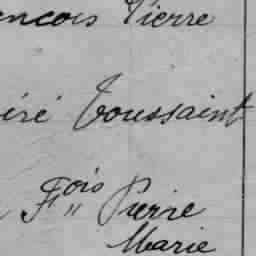 encois Pierre
iré Toussaint
Fois Pierre
Marie